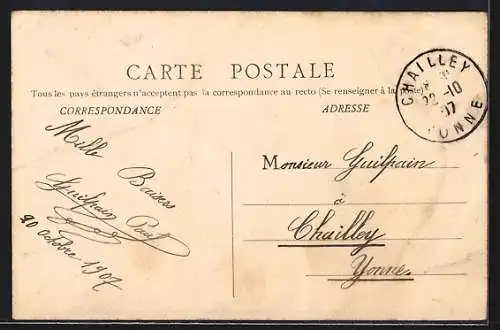 CARTE POSTALE
Tous les pays étrangers n'acceptent pas la correspondance au recto (Se renseigner à la
CORRESPONDANCE
ADRESSE
CHAILLEY
22-10
07
YONNE
Mille
Baisers
Guilpain Paul
20 octobre 1907
Monsieur Guilpain
à
Chailley
Yonne